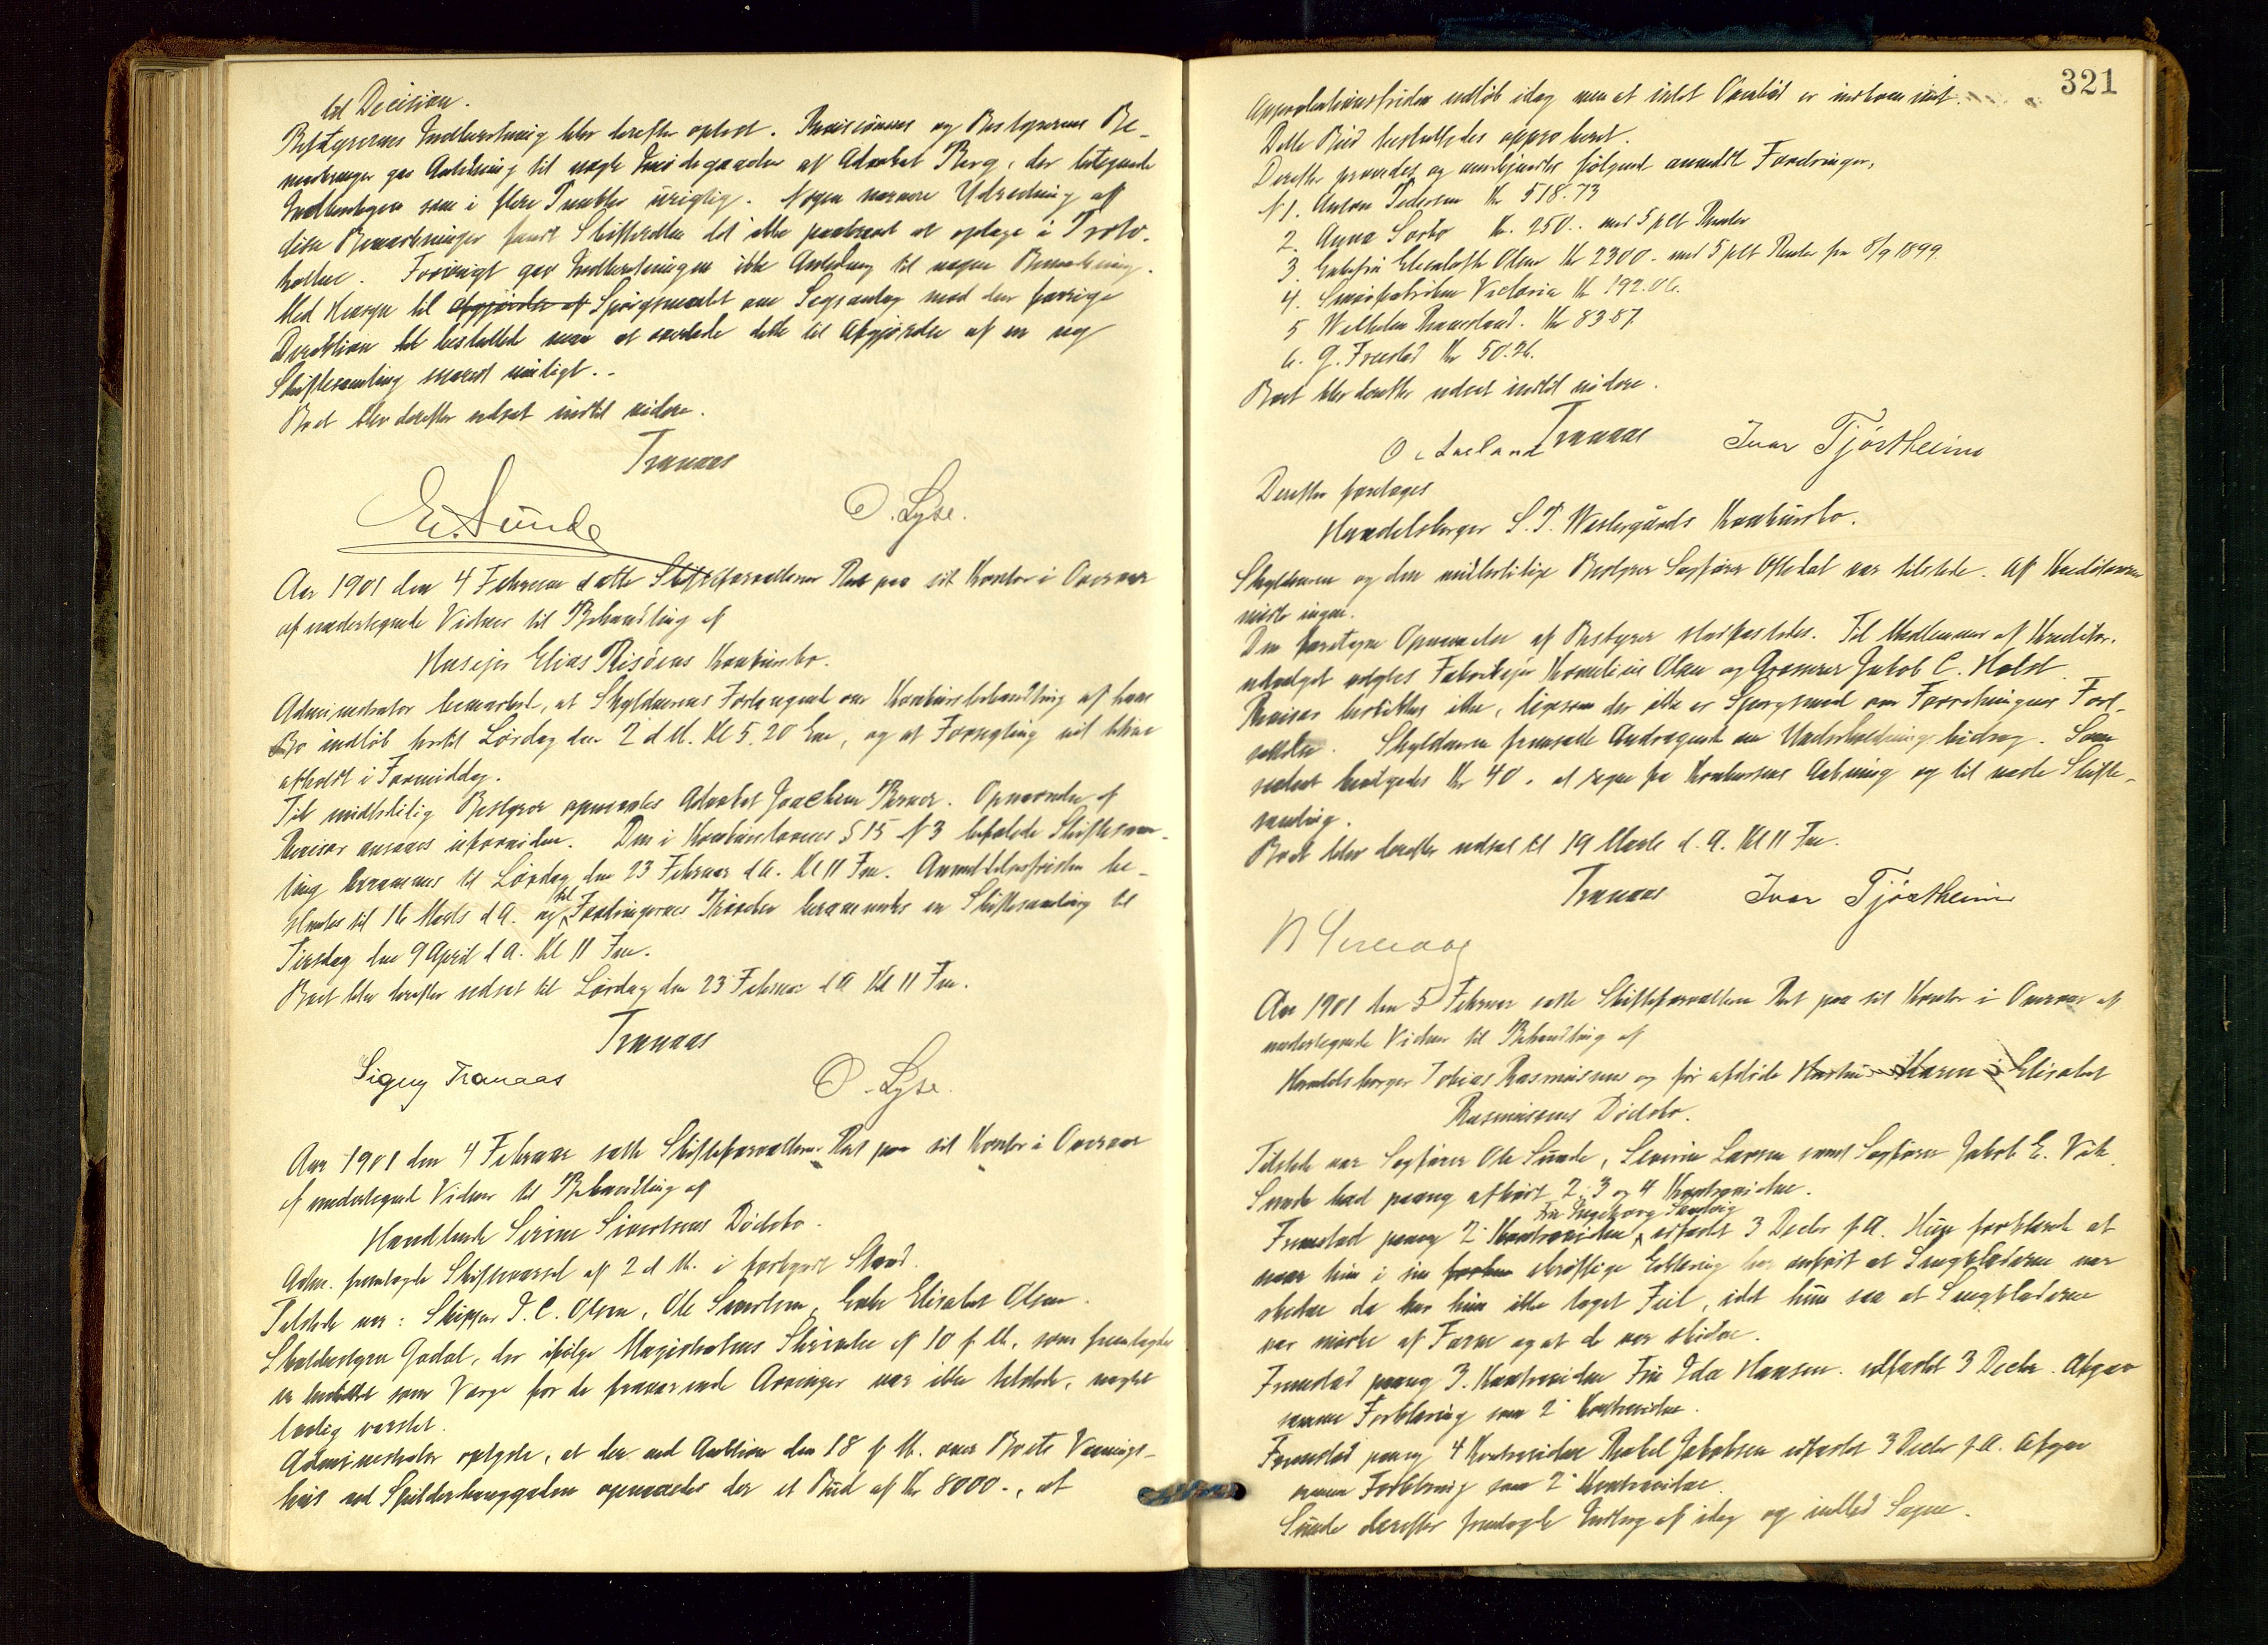 til Decision.
Bestyrernes Indberetning blev derefter oplæst. Revisionens og Bestyrerens Be-
mærkninger gav Anledning til nogle af Advokat Berg, der betegnede
Indberetningen som i flere Punkter urigtig. Nogen nærmere Udredning af
disse Bemærkninger fandt Skifteretten det ikke paakrævet at optage i Proto-
kollen. Forøvrigt gav Indberetningen ikke Anledning til nogen Bemærkning.
Med Hensyn til Afgjørelse af Spørgsmaalet om Søgsmaal mod den forrige
Direktion besluttedes at udsætte dette til Afgjørelse af en ny
Skiftesamling snarest muligt.
Boet blev derefter udsat indtil videre.
Tranaas
E. Sunde O. Lyse.
Aar 1901 den 4 Februar satte Skifteforvalteren Ret paa sit Kontor i Overvær
af undertegnede Vidner til Behandling af
Husejer Elias Risøens Konkursbo.
Administrator bemærkede, at Skyldnerens Forlangende om Konkursbehandling af hans
Bo indløb hertil Lørdag den 2 d. M. Kl 5.20 Em, og at Forsegling vil blive
afholdt i Formiddag.
Til midlertidig Bestyrer opnævntes Advokat Joachim Berner. Opnævnelse af
Revisor ansaaes ufornøden. Den i Konkurslovens § 15 N 3 befalede Skiftesam-
ling berammes til Lørdag den 23 Februar d.A. Kl 11 Fm. Anmeldelsesfristen be-
stemtes til 16 Marts d A. og til Fordringernes Prøvelse berammedes en Skiftesamling til
Tirsdag den 9 April d A. Kl 11 Fm.
Boet blev derefter udsat til Lørdag den 23 Februar d A Kl 11 Fm.
Tranaas
Signy Tranaas O. Lyse.
Aar 1901 den 4 Februar satte Skifteforvalteren Ret paa sit Kontor i Overvær
af undertegnede Vidner til Behandling af
Handlende Serine Sivertsens Dødsbo.
Adm. fremlagde Skiftevarsel af 2 d. M. i forkyndt Stand.
Tilstede var: Skipper T. C. Olsen, Ole Sivertsen, Enke Elisabet Olsen.
Godal, der ifølge Magistratens Skrivelse af 10 f. M. som fremlagdes
er beskikket som Værge for de fraværende Arvinger var ikke tilstede, uagtet
lovlig varslet.
Administrator oplyste, at der ved Auktion den 18 f. M. over Boets Vaanings-
hus ved Spilderhauggaden opnaaedes der et Bud af Kr 8000.-, at
321
Approbationsfristen udløb idag men at intet Overbud er indkommet.
Dette Bud besluttedes approberet.
Derefter prøvedes og anerkjendtes følgende anmeldte Fordringer.
N 1. Anton Pedersen Kr 518.73
2. Anna Sørbø Kr. 250.. med 5 pCt Renter
3. Enkefru Olsen Kr 2300.- med 5 pCt Renter fra 8/9 1899.
4. Smørfabriken Victoria Kr 192.06.
5 Wilhelm Kr 83.87
6. G. Freestad Kr 50.26.
Boet blev derefter udsat indtil videre.
Tranaas
O. Aaeland Ivar Tjøstheim
Derefter foretoges
Handelsborger S. T. Westergaards Konkursbo.
Skyldneren og den midlertidige Bestyrer Sagfører Oftedal var tilstede. Af Kreditorerne
mødte ingen.
Den foretagne Opnævnelse af Bestyrer stadfæstedes. Til Medlemmer af Kreditor-
udvalget valgtes Fabrikejer Kornelius Olsen og Grosserer Jakob C. Holst.
Revisor beskikkes ikke, ligesom der ikke er Spørgsmaal om Forretningens Fort-
sættelse. Skyldneren fremsatte Andragende om Underholdningsbidrag. Som
saadant bevilgedes Kr 40.- at regne fra Konkursens Aabning og til næste Skifte-
samling.
Boet blev derefter udsat til 19 Marts d. A. Kl 11 Fm.
Tranaas Ivar Tjøstheim
Aar 1901 den 5 Februar satte Skifteforvalteren Ret paa sit Kontor i Overvær af
undertegnede Vidner til Behandling af
Handelsborger Tobias Rasmussens og før afdøde Hustru Karen Elisabet
Rasmussens Dødsbo.
Tilstede var Sagfører Ole Sunde, Severin Larsen samt Sagfører Jakob E. Vik.
Sunde bad paany afhørt 2, 3 og 4 Kontravidne.
Fremstod paany 2 Kontravidne, Fru Ingeborg Sandvig edfæstet 3 Decbr f.A. Hun forklarede at
naar hun i sin skriftlige Erklæring har anført at Sengklæderne var
skidne da har hun ikke taget Feil, idet hun saa at Sengklæderne
var mørke af Farve og at de var skidne.
Fremstod paany 3. Kontravidne Fru Ida Hansen. edfæstet 3 Decbr. Afgav
samme Forklaring som 2 Kontravidne.
Fremstod paany 4 Kontravidne Rakel Jakobsen edfæstet 3 Decbr f.A. Afgav
samme Forklaring som 2 Kontravidne.
Sunde derefter fremlagde Indlæg af idag og indlod Sagen.